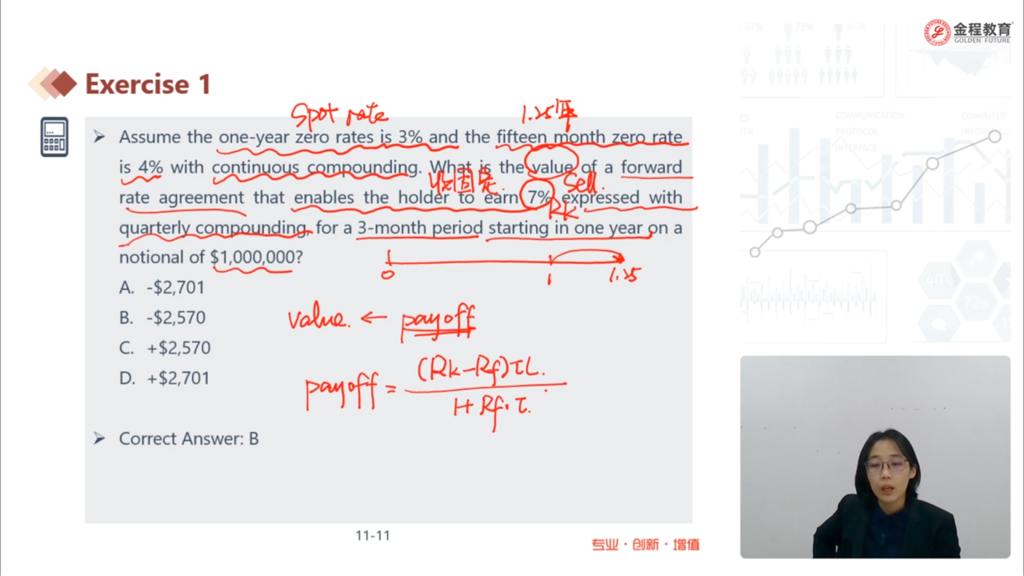 金程教育
GOLDEN FUTURE
Exercise 1
Spot rate
1.25年
Assume the one-year zero rates is 3% and the fifteen month zero rate
is 4% with continuous compounding. What is the value of a forward
收固定. Sell.
rate agreement that enables the holder to earn 7% expressed with
Rk
quarterly compounding, for a 3-month period starting in one year on a
notional of $1,000,000?
0 1 1.25
A. -$2,701
B. -$2,570
C. +$2,570
D. +$2,701
value. ← payoff
payoff = (Rk-Rf)τL.
1+Rf·τ.
Correct Answer: B
11-11
专业·创新·增值
COMMUNICATION
PROTOCOL
INTERFACE